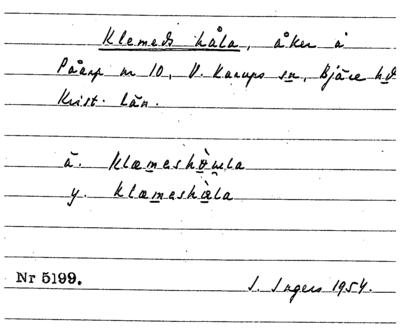 Klemeds håla, åker å
Påarp nr 10, V. Karups sn, Bjäre hd
Krist. län.
ä. klæmeshòula
y. klæmeshà̰la
Nr 5199.
I. Ingers 1954.